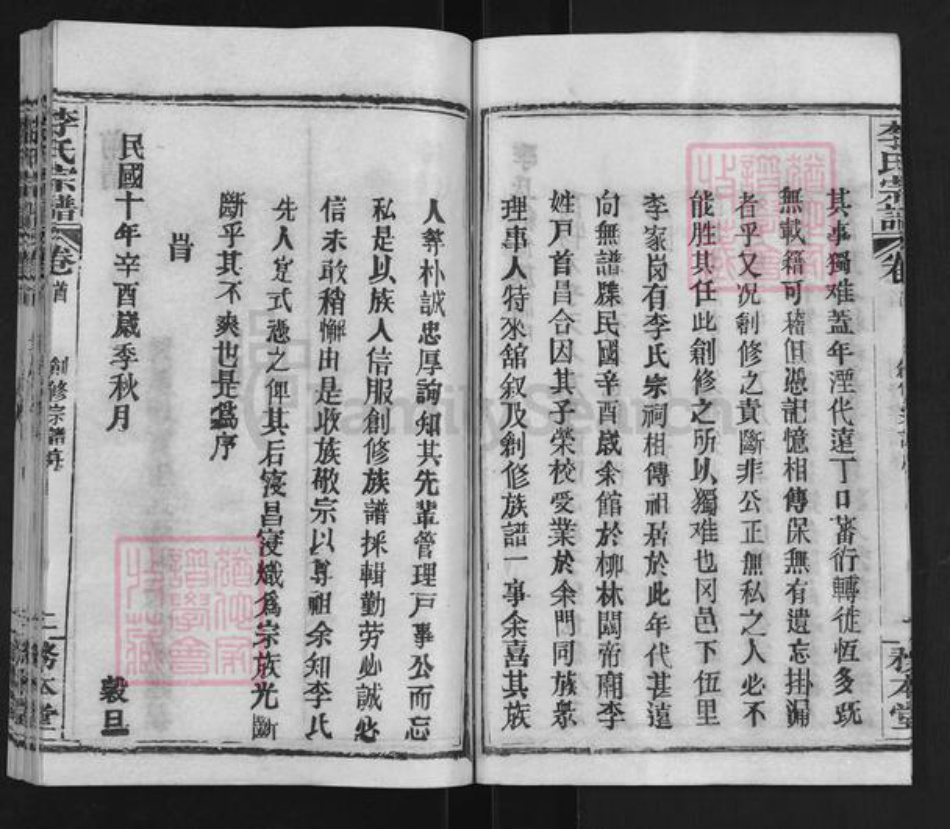 李氏宗譜
其事獨难蓋年湮代遠丁口蕃衍轉徙恆多既
無載籍可稽但憑記憶相傳保無有遺忘掛漏
者乎又況創修之責斷非公正無私之人必不
能胜其任此創修之所以獨难也冈邑下伍里
李家岗有李氏宗祠相傳祖居於此年代甚遠
向無譜牒民國辛酉嵗余館於柳林關帝廟李
姓戶首昌合因其子榮校受業於余門同族衆
理事人特來舘叙及創修族譜一事余喜其族
人彝朴誠忠厚詢知其先輩管理戶事公而忘
私是以族人信服創修族譜採輯勤劳必誠必
信未敢稍懈由是收族敬宗以尊祖余知李氏
先人寔式憑之俾其后寖昌寖熾爲宗族光斷
斷乎其不爽也是爲序
旹
民國十年辛酉嵗季秋月
榖旦
李氏宗譜
卷首
創修宗譜序
二
務本堂
FamilySearch